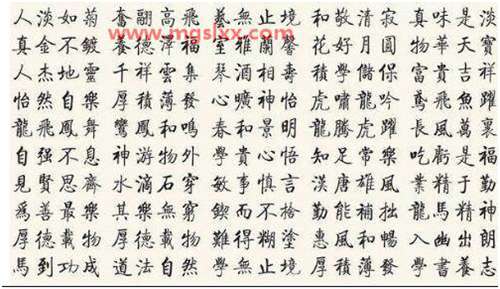 www.mgslxx.com
人淡如菊 奮翮高飛 藝無止境 和敬清寂 真味是淡
真金不鍍 養德澤福 室雅蘭馨 花好月圓 物華天寶
人杰地靈 千祥雲集 琴 壽 學儲 富貴吉祥
怡然自樂 厚積薄發 心曠神怡 虎嘯龍吟 鳶飛魚躍
龍飛鳳舞 鸞鳳和鳴 春和景明 龍騰虎躍 長風萬裏
自强不息 神游物外 學貴心悟 知足常樂 吃虧是福
見賢思齊 水滴石穿 敏事慎言 漢唐雄風 業精于勤
爲善最樂 其樂無窮 鍥而不捨 勤能補拙 龍馬精神
厚德載物 厚德載物 難得糊塗 惠風和暢 入幽出朗
馬到功成 道法自然 學無止境 厚積薄發 學書養志